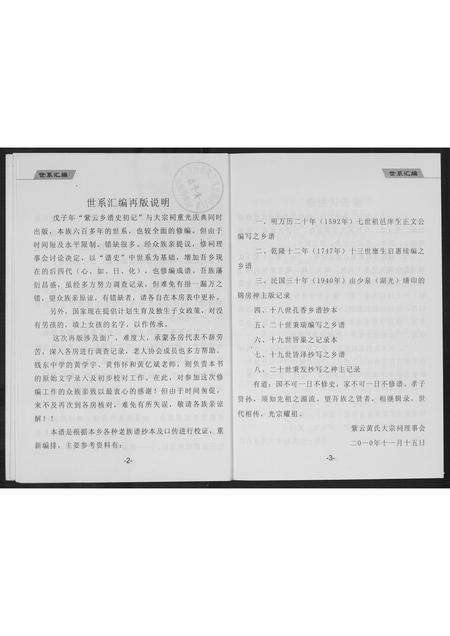 世系汇编
世系汇编再版说明
戊子年“紫云乡谱史初记”与大宗祠重光庆典同时
出版，本族六百多年的世系，也较全面的修编。但由于
时间短及水平限制，错缺很多。经众族亲提议，修祠理
事会讨论决定，以“谱史”中世系为基础，增加吾乡现
在的后四代（心、如、日、化），也修编成谱，吾族藩
衍昌盛，虽经多方努力调查记录，但难免有挂一漏万之
错，望众族亲原谅，有错缺者，请各自在本房表中更补。
另外，国家现在提倡计划生育及独生子女政策，对没
有男孩的，填上女孩的名字，以作传承。
这次再版涉及面广，难度大，承蒙各房代表不辞劳
苦，深入各房进行调查记录，老人协会成员也多方帮助，
钱东中学的黄学字、黄伟怀和黄亿斌老师，则负责本书
的原始文字录入和初步校对工作。在此，对参加这次修
编工作的众族亲致以最衷心的感谢！但由于时间匆促，
来不及再次到各房核对，难免有所失误，敬请各族亲谅
解！！
本谱是根据本乡各种老族谱抄本及口传进行校证，重
新编排，主要参考资料有：
-2-
世系汇编
一、明万历二十年（1592年）七世祖邑庠生正文公
编写之乡谱
二、乾隆十二年（1747年）十三世廪生启蓬续编之
乡谱
三、民国三十年（1940年）由少泉（湖光）缮印的
锦房神主版记录
四、十八世孔香乡谱抄本
五、二十世莱瑞编写之乡谱
六、十九世皆巢之记录本
七、十九世皆泽抄写之乡谱
八、二十世秉发抄写之神主记录
有道：国不可一日不修史，家不可一日不修谱，孝子
贤孙，须知先祖之源流，望吾族之贤者，相继辑录，世
代相传，光宗耀祖。
紫云黄氏大宗祠理事会
二〇一〇年十一月十五日
-3-